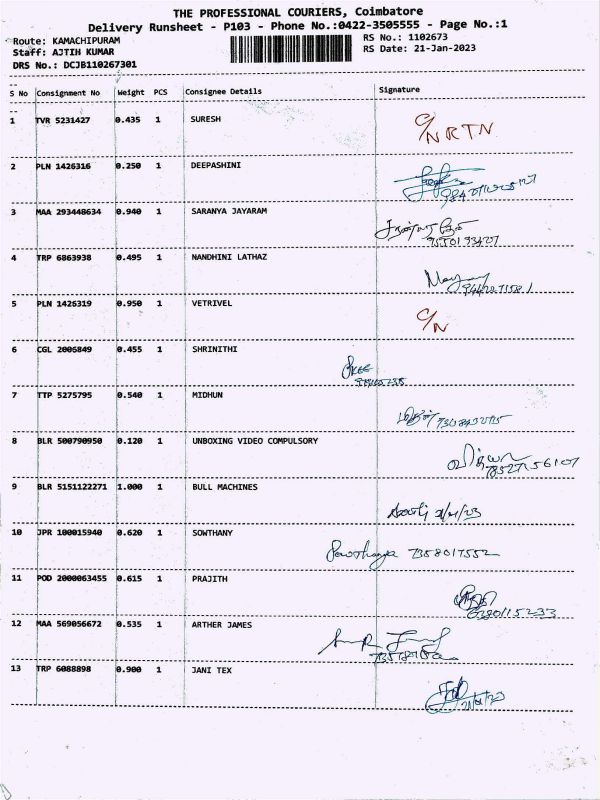 THE PROFESSIONAL COURIERS, Coimbatore
Delivery Runsheet - P103 - Phone No.:0422-3505555 - Page No.:1
Route: KAMACHIPURAM RS No.: 1102673
Staff: AJTIH KUMAR RS Date: 21-Jan-2023
DRS No.: DCJB110267301
S No Consignment No Weight PCS Consignee Details Signature
1 TVR 5231427 0.435 1 SURESH C/N RTN
2 PLN 1426316 0.250 1 DEEPASHINI
3 MAA 293448634 0.940 1 SARANYA JAYARAM
4 TRP 6863938 0.495 1 NANDHINI LATHAZ
5 PLN 1426319 0.950 1 VETRIVEL C/N
6 CGL 2006849 0.455 1 SHRINITHI
7 TTP 5275795 0.540 1 MIDHUN
8 BLR 500790950 0.120 1 UNBOXING VIDEO COMPULSORY
9 BLR 5151122271 1.000 1 BULL MACHINES
10 JPR 100015940 0.620 1 SOWTHANY 7358017552
11 POD 2000063455 0.615 1 PRAJITH 6380115233
12 MAA 569056672 0.535 1 ARTHER JAMES
13 TRP 6088898 0.900 1 JANI TEX